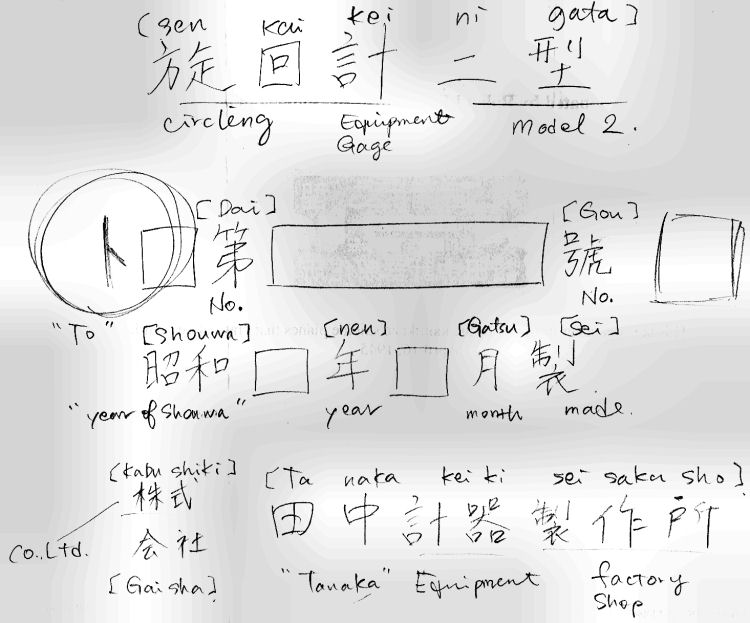 [sen kai kei ni gata]
旋回計二型
circleng Equipment Gage model 2.
[Dai] [Gou]
ト 第 號
No. No.
"To" [Shouwa] [nen] [Gatsu] [Sei]
昭和 年 月 製
"year of Shouwa" year month made.
[kabu shiki] [Ta naka kei ki sei saku sho]
株式
会社 田中計器製作所
Co., Ltd.
[Gaisha] "Tanaka" Equipment factory shop